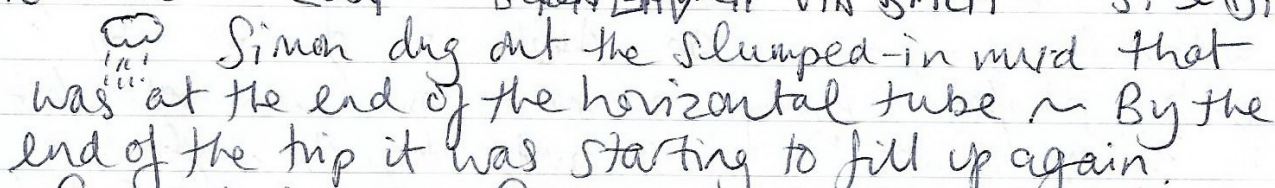 Simon dug out the slumped-in mud that
was at the end of the horizontal tube ~ By the
end of the trip it was starting to fill up again.